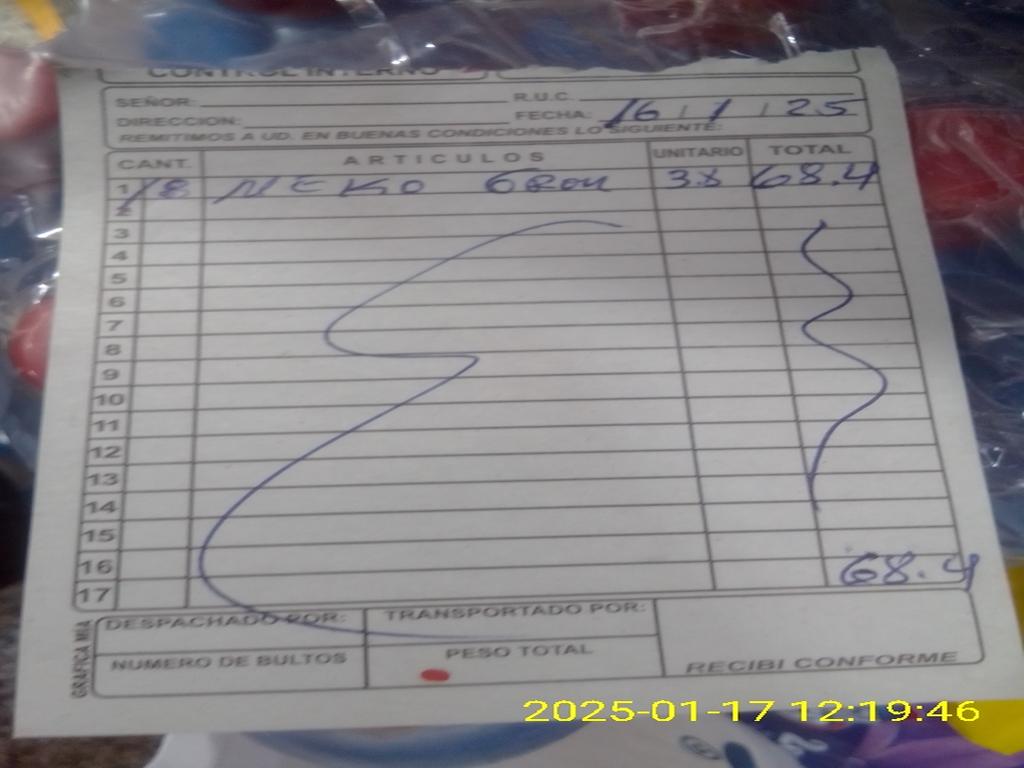 CONTROL INTERNO
SEÑOR:
R.U.C.
DIRECCION:
FECHA: 16 / 1 / 25
REMITIMOS A UD. EN BUENAS CONDICIONES LO SIGUIENTE:
CANT. ARTICULOS UNITARIO TOTAL
1 18 NEKO 3.8 68.4
2
3
4
5
6
7
8
9
10
11
12
13
14
15
16 68.4
17
DESPACHADO POR: TRANSPORTADO POR:
NUMERO DE BULTOS PESO TOTAL RECIBI CONFORME
GRAFICA MIA
2025-01-17 12:19:46